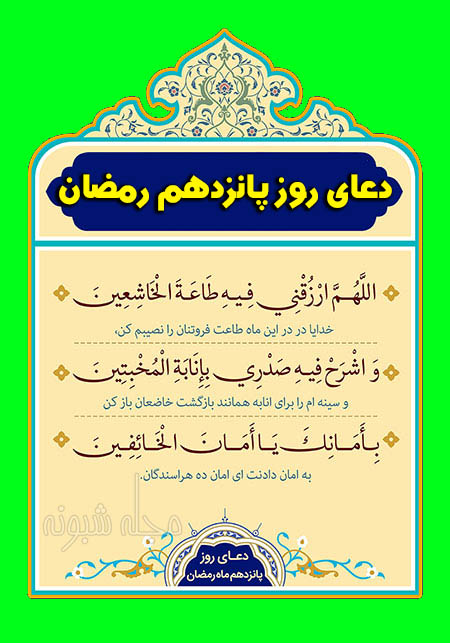 دعای روز پانزدهم رمضان
اللَّهُمَّ ارْزُقْنِي فِيهِ طَاعَةَ الْخَاشِعِينَ
خدایا در در این ماه طاعت فروتنان را نصیبم کن،
وَ اشْرَحْ فِيهِ صَدْرِي بِإِنَابَةِ الْمُخْبِتِينَ
و سینه ام را برای انابه همانند بازگشت خاضعان باز کن
بِأَمَانِكَ يَا أَمَانَ الْخَائِفِينَ
به امان دادنت ای امان ده هراسندگان.
مجله شبونه
دعـای روز
پانزدهم ماه رمضان